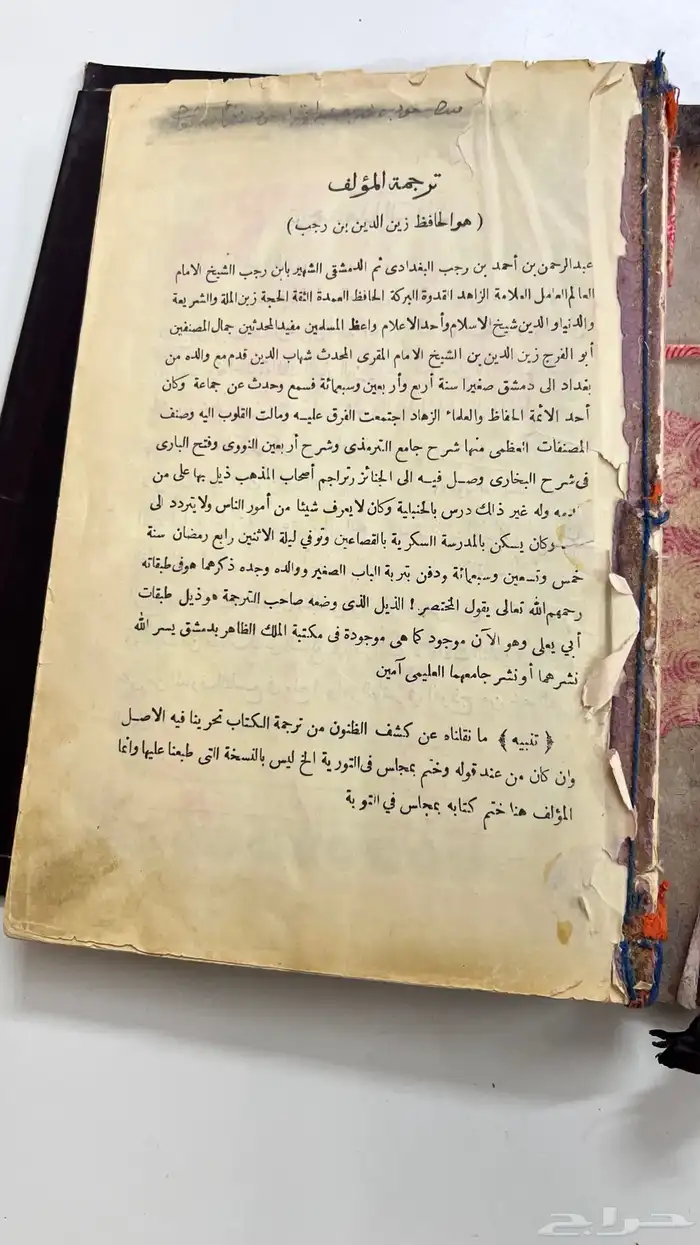 ترجمة المؤلف
(هو الحافظ زين الدين بن رجب)
عبدالرحمن بن أحمد بن رجب البغدادى ثم الدمشقى الشهير بابن رجب الشيخ الامام
العالم العامل العلامة الزاهد القدوة البركة الحافظ العمدة الثقة الحجة زين الملة والشريعة
والدنيا والدين شيخ الاسلام وأحد الاعلام واعظ المسلمين مفيد المحدثين جمال المصنفين
أبو الفرج زين الدين بن الشيخ الامام المقرى المحدث شهاب الدين قدم مع والده من
بغداد الى دمشق صغيرا سنة أربع وأربعين وسبعمائة فسمع وحدث عن جماعة وكان
أحد الأئمة الحفاظ والعلماء الزهاد اجتمعت الفرق عليه ومالت القلوب اليه وصنف
المصنفات العظمى منها شرح جامع الترمذى وشرح أربعين النووى وفتح البارى
فى شرح البخارى وصل فيه الى الجنائز وتراجم أصحاب المذهب ذيل بها على من
وله غير ذالك درس بالحنبلية وكان لا يعرف شيئا من أمور الناس ولا يتردد الى
وكان يسكن بالمدرسة السكرية بالقصاعين وتوفي ليلة الاثنين رابع رمضان سنة
خمس وتسعين وسبعمائة ودفن بتربة الباب الصغير ووالده وجده ذكرهما هو فى طبقاته
رحمهم الله تعالى يقول المختصر ! الذيل الذى وضعه صاحب الترجمة هو ذيل طبقات
أبي يعلى وهو الآن موجود كما هى موجودة فى مكتبة الملك الظاهر بدمشق يسر الله
نشرهما أو نشر جامعهما العليمى آمين
﴿ تنبيه ﴾ ما نقلناه عن كشف الظنون من ترجمة الكتاب تحرينا فيه الاصل
وان كان من عند قوله وختم بمجلس فى التورية الخ ليس بالنسخة التى طبعنا عليها وانما
المؤلف هنا ختم كتابه بمجاس في التوبة
حراج